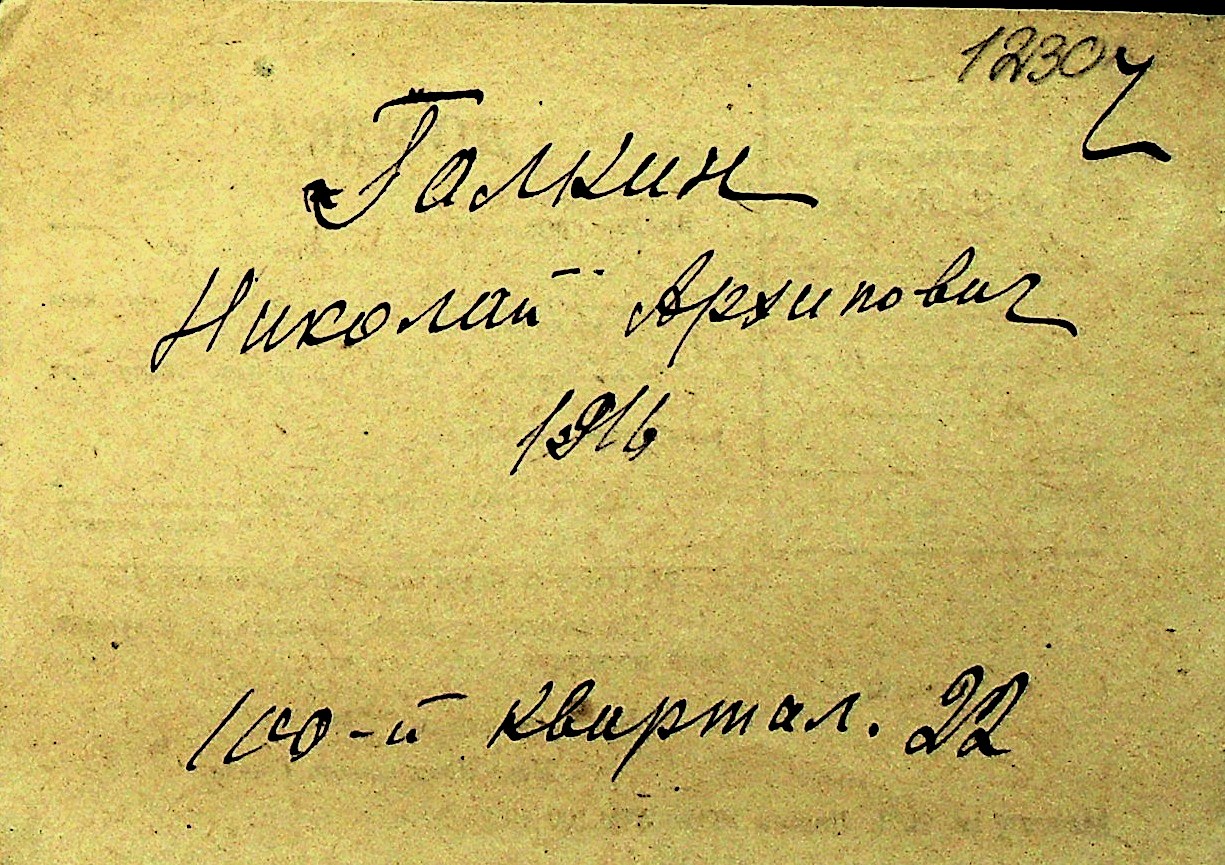 1230
Галкин
Николай Архипович
1916
100-й квартал. 22